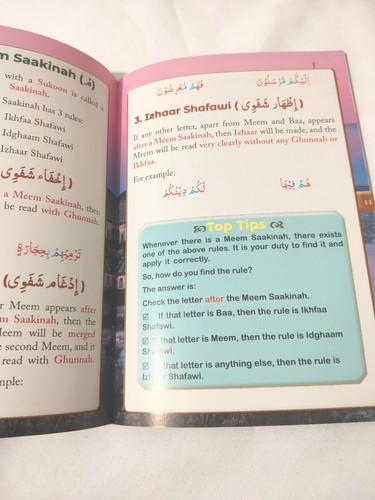 m Saakinah (مْ)
with a Sukoon is called a
Saakinah.
Saakinah has 3 rules:
Ikhfaa Shafawi
Idghaam Shafawi
Izhaar Shafawi
( إِخْفَاء شَفَوِى
a Meem Saakinah, then
be read with Ghunnah.
تَرْمِيْهِمْ بِحِجَارَةٍ
( إِدْغَام شَفَوِى)
r Meem appears after
m Saakinah, then the
Meem will be merged
e second Meem, and it
read with Ghunnah.
mple:
اِلَيْكُمْ مُّرْسَلُوْنَ
فَهُمْ مُّعْرِضُوْنَ
3. Izhaar Shafawi ( إِظْهَار شَفَوِى )
If any other letter, apart from Meem and Baa, appears
after a Meem Saakinah, then Izhaar will be made, and the
Meem will be read very clearly without any Ghunnah or
Ikhfaa.
For example:
هُمْ فِيْهَا
لَكُمْ دِيْنُكُمْ
Top Tips
Whenever there is a Meem Saakinah, there exists
one of the above rules. It is your duty to find it and
apply it correctly.
So, how do you find the rule?
The answer is:
Check the letter after the Meem Saakinah.
☑ If that letter is Baa, then the rule is Ikhfaa
Shafawi.
☑ If that letter is Meem, then the rule is Idghaam
Shafawi.
☑ If that letter is anything else, then the rule is
Izhaar Shafawi.
11